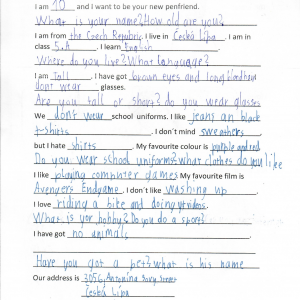 I am 10 and I want to be your new penfriend.
What is your name? How old are you?
I am from the Czech Republic. I live in Česká Lípa. I am in
class 5.A. I learn English.
Where do you live? What language?
I am Tall. I have got brown eyes and long blond hair
dont wear glasses.
Are you tall or short? do you wear glasses
We dont wear school uniforms. I like jeans an black
t-shirts. I don´t mind sweathers
but I hate shirts. My favourite colour is purple and red
Do you wear school uniforms? what clothes do you like
I like playing computer games My favourite film is
Avengers Endgame. I don´t like washing up.
I love riding a bike and doing videos.
What is yor hobby? Do you do a sport?
I have got no animals
Have you got a pet? what is his name
Our address is 3056, Antonína Sovy street
Česká Lípa